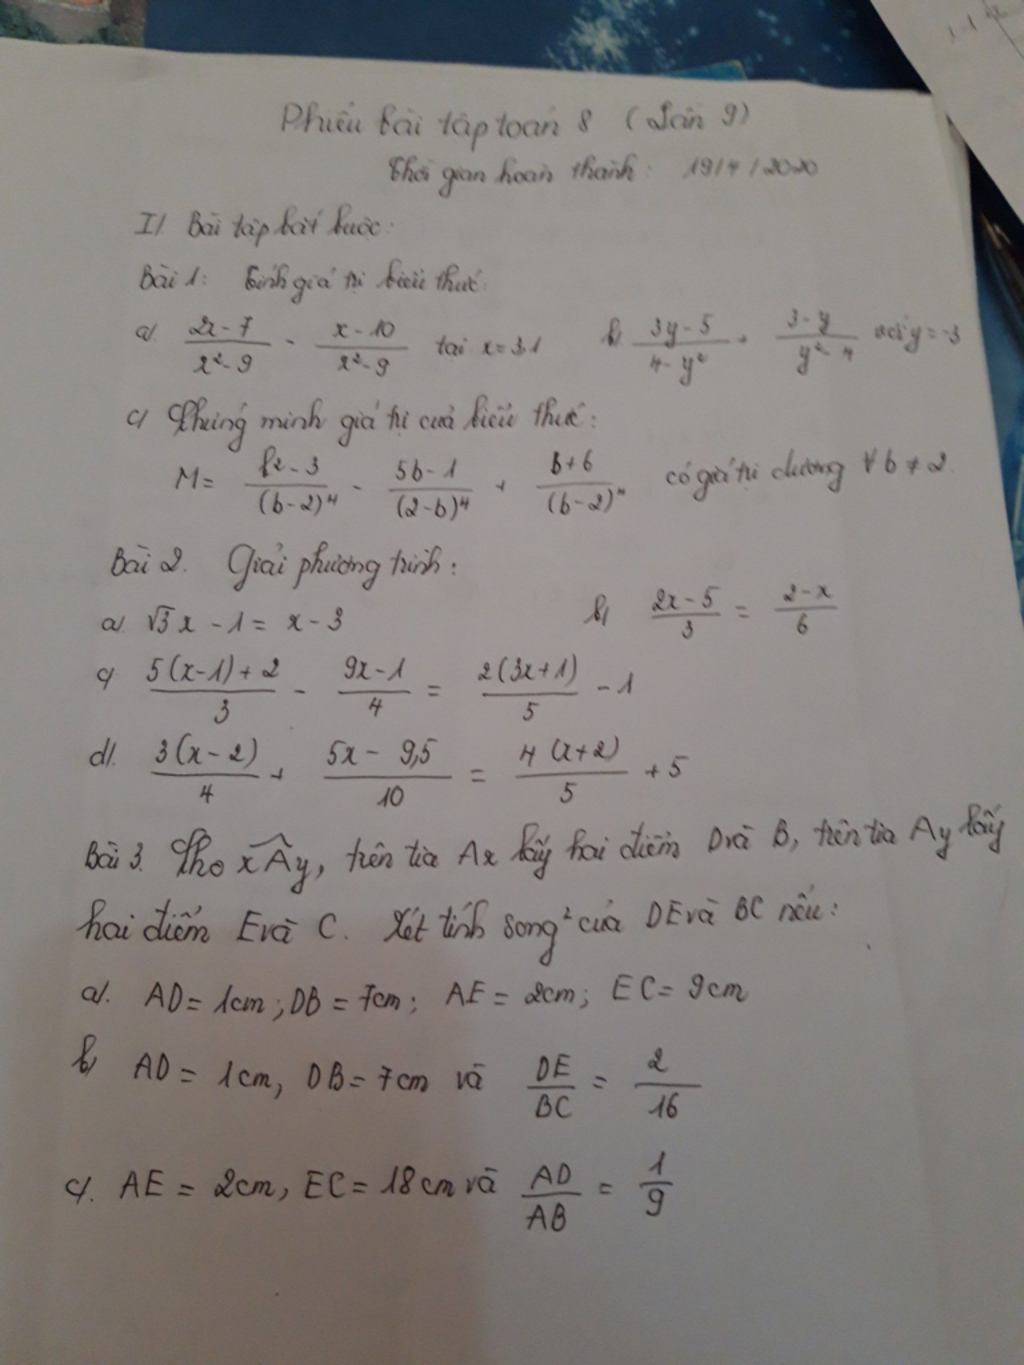 Phiếu bài tập toán 8 (Lần 9)
Thời gian hoàn thành: 19/4/2020
I/ Bài tập bắt buộc:
Bài 1: Tính giá trị biểu thức
a/ (2x-7)/(x²-9) - (x-10)/(x²-9) tại x=3,1 b/ (3y-5)/(4-y²) + (3-y)/(y²-4) với y=-3
c/ Chứng minh giá trị của biểu thức:
M= (b²-3)/(b-2)⁴ - (5b-1)/(2-b)⁴ + (b+6)/(b-2)⁴ có giá trị dương ∀b≠2.
Bài 2. Giải phương trình:
a/ √3x-1 = x-3 b/ (2x-5)/3 = (2-x)/6
c/ (5(x-1)+2)/3 - (9x-1)/4 = 2(3x+1)/5 - 1
d/. 3(x-2)/4 + (5x-9,5)/10 = 4(x+2)/5 + 5
Bài 3. Cho xÂy, trên tia Ax lấy hai điểm D và B, trên tia Ay lấy
hai điểm E và C. Xét tính song² của DE và BC nếu:
a/. AD=1cm; DB=7cm; AE=2cm; EC=9cm
b/ AD=1cm, DB=7cm và DE/BC = 2/16
c/. AE=2cm, EC=18cm và AD/AB = 1/9